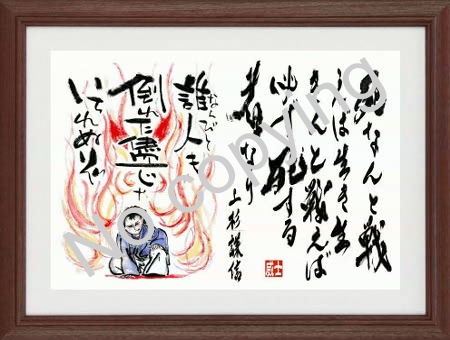 死なんと戦
えば生き生
きんと戦えば
必ず死する
者なり
上杉謙信
誰人も
なんびと
倒れた儘じゃ
いられぬぞ
No copying